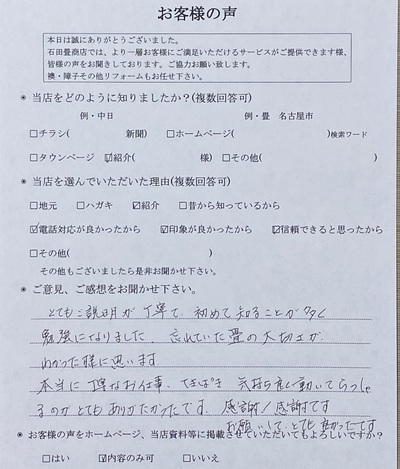 お客様の声
本日は誠にありがとうございました。
石田畳商店では、より一層お客様にご満足いただけるサービスがご提供できます様、
皆様の声をお聞きしております。ご協力お願い致します。
襖・障子その他リフォームもお任せ下さい。
◉ 当店をどのように知りましたか？(複数回答可)
例・中日 例・畳 名古屋市
□チラシ( 新聞) □ホームページ( )検索ワード
□タウンページ ☑紹介( 様) □その他( )
◉ 当店を選んでいただいた理由(複数回答可)
□地元 □ハガキ ☑紹介 □昔から知っているから
☑電話対応が良かったから ☑印象が良かったから ☑信頼できると思ったから
□その他( )
その他もございましたら是非お聞かせ下さい。
◉ ご意見、ご感想をお聞かせ下さい。
とてもご説明が丁寧で、初めて知ることが多く
勉強になりました。忘れていた畳の大切さが
わかった様に思います
本当に丁寧なお仕事、てきぱき 気持ち良く動いてらっしゃ
るのがとてもありがたかったです。感謝!感謝です
お願いして、とても助かったです
◉ お客様の声をホームページ、当店資料等に掲載させていただいてもよろしいですか？
□はい ☑内容のみ可 □いいえ